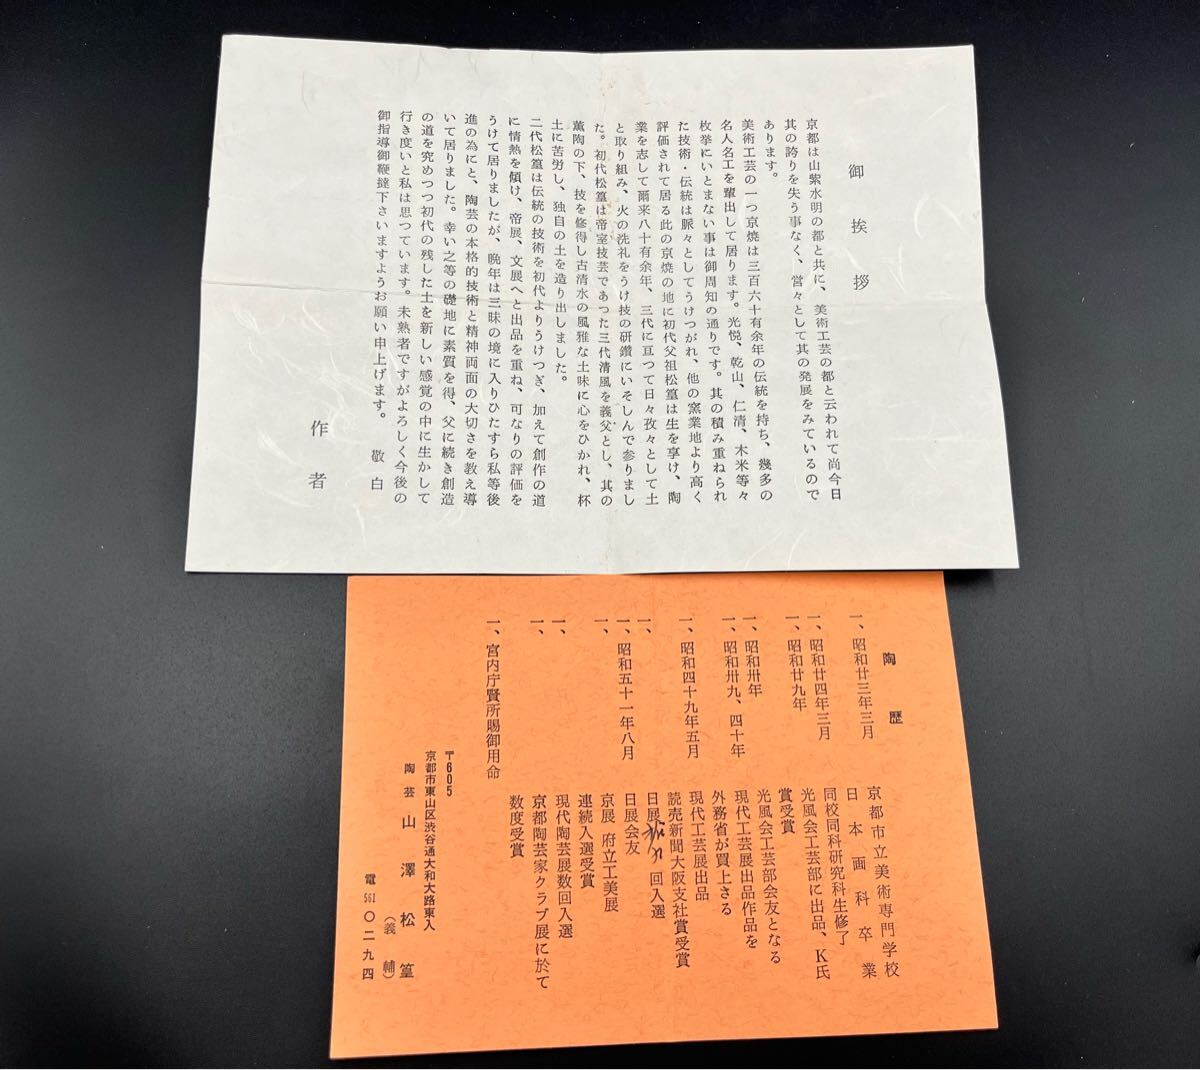 御挨拶
京都は山紫水明の都と共に、美術工芸の都と云われて尚今日
其の誇りを失う事なく、営々として其の発展をみているので
あります。
美術工芸の一つ京焼は三百六十有余年の伝統を持ち、幾多の
名人名工を輩出して居ります。光悦、乾山、仁清、木米等々
枚挙にいとまない事は御周知の通りです。其の積み重ねられ
た技術・伝統は脈々としてうけつがれ、他の窯業地より高く
評価されて居る此の京焼の地に初代父祖松篁は生を享け、陶
業を志して爾来八十有余年、三代に亘つて日々孜々として土
と取り組み、火の洗礼をうけ技の研鑽にいそしんで参りまし
た。初代松篁は帝室技芸であつた三代清風を義父とし、其の
薫陶の下、技を修得し古清水の風雅な土味に心をひかれ、杯
土に苦労し、独自の土を造り出しました。
二代松篁は伝統の技術を初代よりうけつぎ、加えて創作の道
に情熱を傾け、帝展、文展へと出品を重ね、可なりの評価を
うけて居りましたが、晩年は三昧の境に入りひたすら私等後
進の為にと、陶芸の本格的技術と精神両面の大切さを教え導
いて居りました。幸い之等の礎地に素質を得、父に続き創造
の道を究めつつ初代の残した土を新しい感覚の中に生かして
行き度いと私は思つています。未熟者ですがよろしく今後の
御指導御鞭撻下さいますようお願い申上げます。 敬白
作者
陶歴
一、昭和廿三年三月 京都市立美術専門学校
日本画科卒業
一、昭和廿四年三月 同校同科研究科生修了
一、昭和廿九年 光風会工芸部に出品、K氏
賞受賞
一、昭和卅年 光風会工芸部会友となる
一、昭和卅九、四十年 現代工芸展出品作品を
外務省が買上さる
一、昭和四十九年五月 現代工芸展出品
読売新聞大阪支社賞受賞
一、 日展 回入選
一、昭和五十一年八月 日展会友
一、 京展 府立工美展
連続入選受賞
一、 現代陶芸展数回入選
一、 京都陶芸家クラブ展に於て
数度受賞
一、宮内庁賢所賜御用命
〒605
京都市東山区渋谷通大和大路東入
陶芸 山澤松篁
(義輔)
電561〇二九四